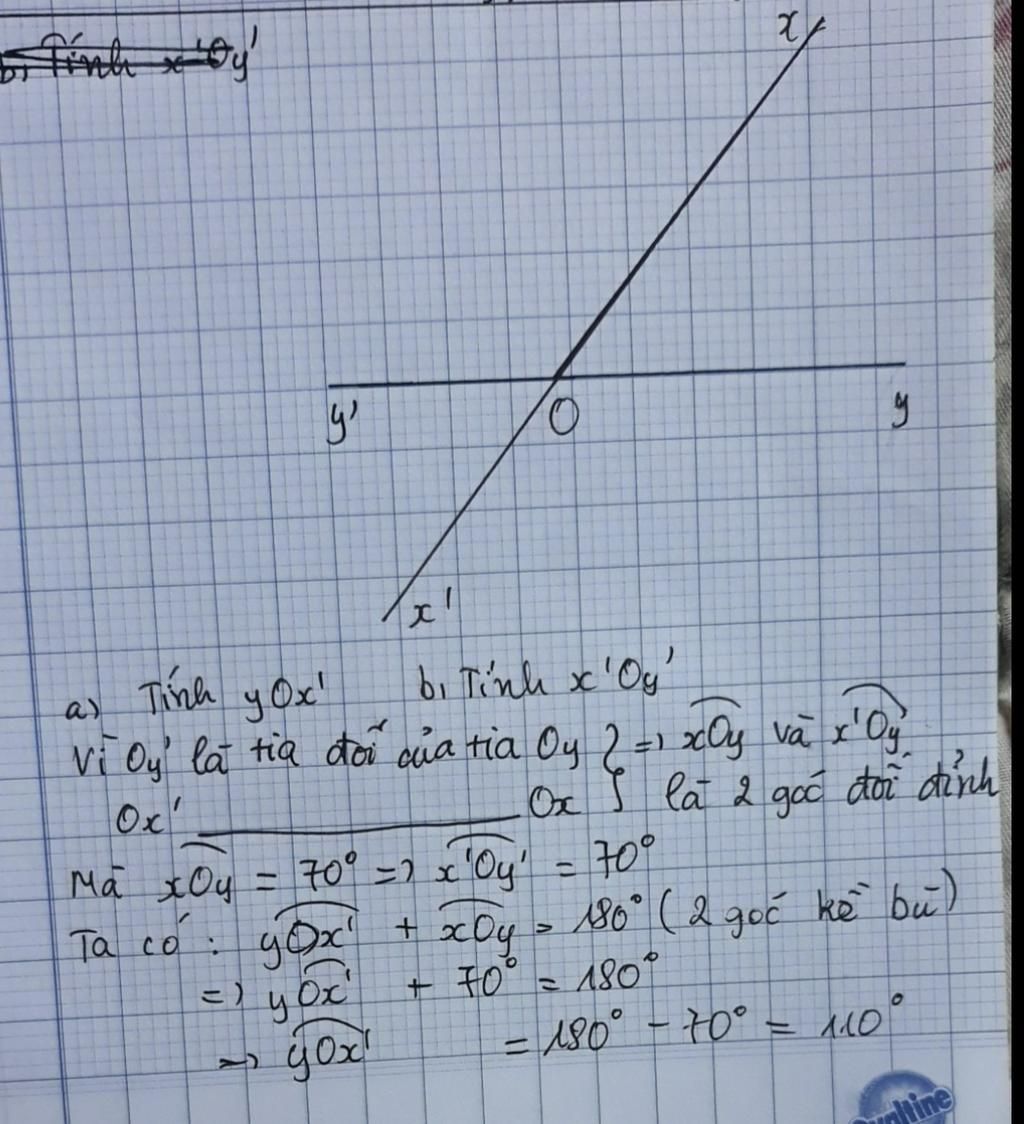 b, Tính x'Oy'
x
y'
O
y
x'
a) Tính yOx' b, Tính x'Oy'
Vì Oy' là tia đối của tia Oy } => xOy và x'Oy'
Ox' ________ Ox } là 2 góc đối đỉnh
Mà xOy = 70° => x'Oy' = 70°
Ta có : yOx' + xOy = 180° ( 2 góc kề bù )
=> yOx' + 70° = 180°
=> yOx' = 180° - 70° = 110°